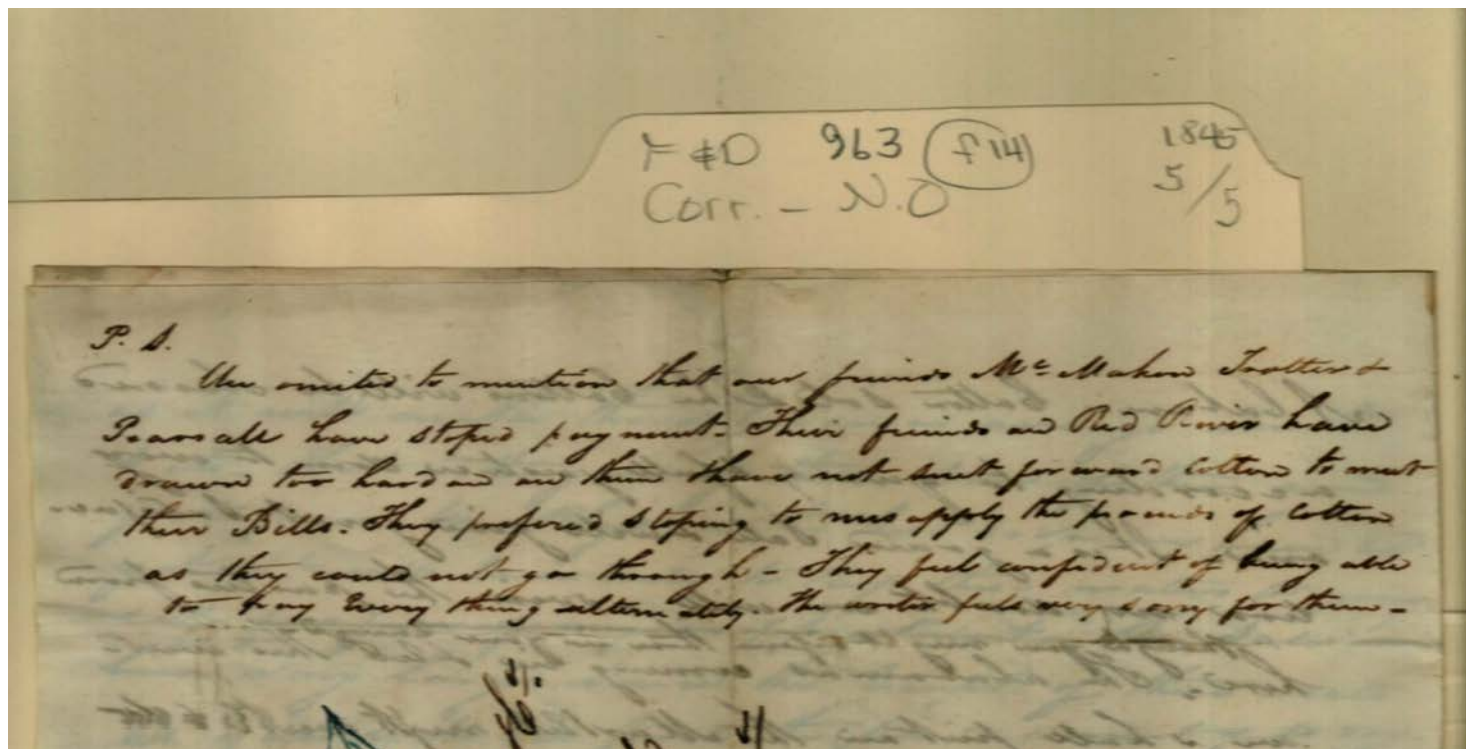 F & D 963 f 14 1845
Corr. - N.O 5/5
P. S.
We omited to mention that our friends Mc Mahon Trotter &
Pearsall have stoped payment - Their friends on Red River have
drawn too hard on them & have not sent forward Cotton to meet
their Bills. They prefered stoping to misapply the proceeds of Cotton
as they could not go through - They feel confident of being able
to pay Every thing ultimately. The writer feels very sorry for them -